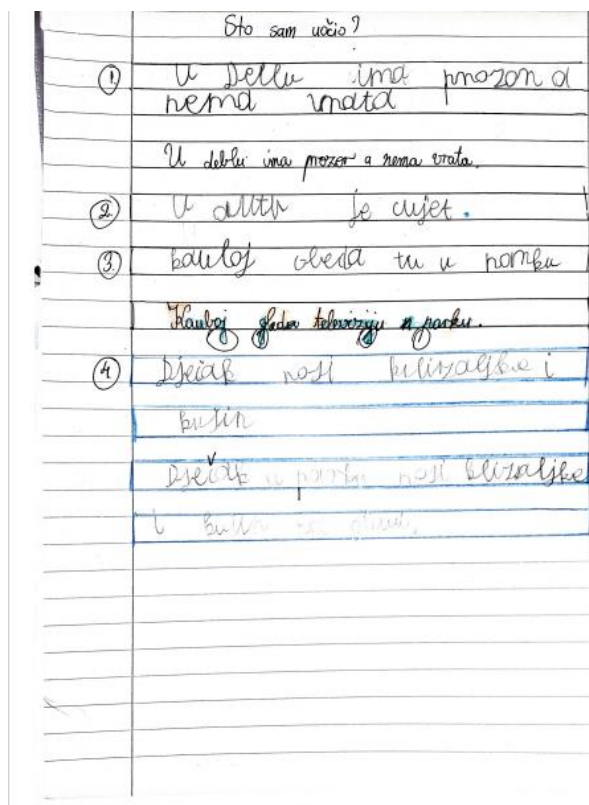 Što sam uočio?
1. U Deblu ima prozor a
nema vrata
U deblu ima prozor a nema vrata.
2. U autu je cvijet.
3. kauboj gleda tv u parku
Kauboj gleda televiziju u parku.
4. Dječak nosi klizaljke i
kušin
Dječak u parku nosi klizaljke
i kušin na glavi.